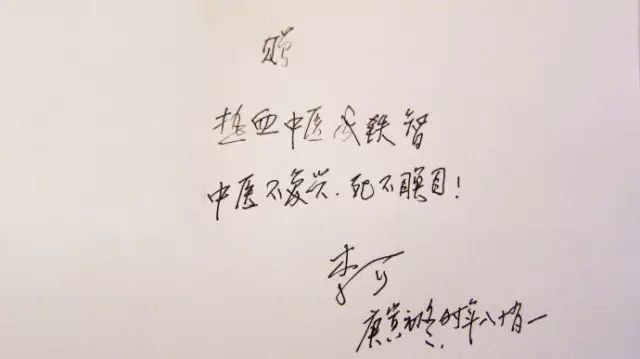 赠
中医铁智
中医不复兴．死不瞑目！
李可
庚寅初冬．时年八十有一